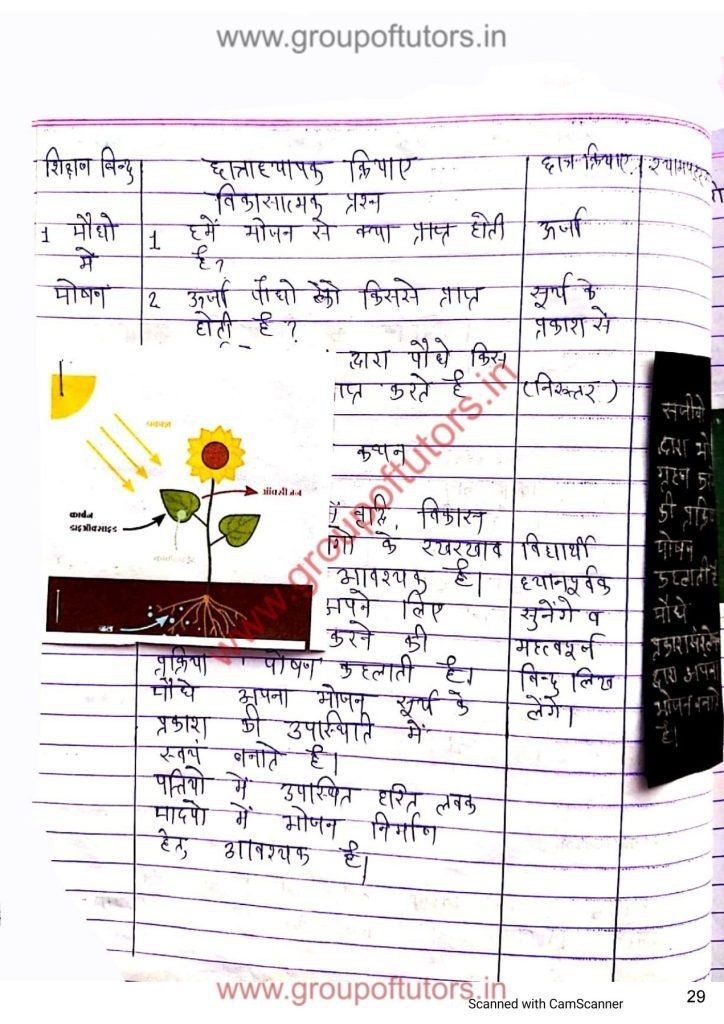 www.groupoftutors.in
शिक्षण बिन्दु
छात्राध्यापक क्रियाए
छात्र-क्रियाए
श्यामपट्ट
विकासात्मक प्रश्न
1 पौधो
में
पोषन
1 हमें भोजन से क्या प्राप्त होती
है?
ऊर्जा
2 ऊर्जा पौधो को किससे प्राप्त
होती है?
सूर्य के
प्रकाश से
द्वारा पौधे किस
करते है
(निरूत्तर)
कथन
वृद्धि, विकास
के रखरखाव
आवश्यक है।
अपने लिए
करने की
प्रक्रिया 'पोषन' कहलाती है।
पौधे अपना भोजन सूर्य के
प्रकाश की उपस्थिति में
स्वयं बनाते है।
पत्तियो में उपस्थित हरित लवक
पादपो में भोजन निर्माण
हेतु आवश्यक है।
विद्यार्थी
ध्यानपूर्वक
सुनेंगे व
महत्वपूर्न
बिन्दु लिख
लेंगे।
प्रकाश
ऑक्सीजन
कार्बन
डाइऑक्साइड
जल
सजीवो
द्वारा भो
ग्रहन कर
की प्रक्रि
पोषन
कहलाती है
पौधे
प्रकाश संश्लेषन
द्वारा अपना
भोजन बनाते
है।
www.groupoftutors.in
www.groupoftutors.in
Scanned with CamScanner
29